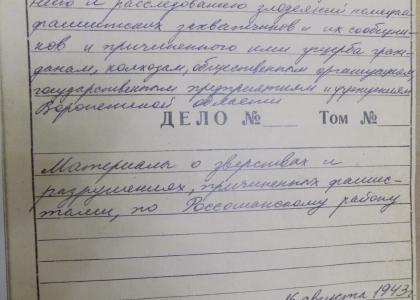 нию и расследованию злодеяний немецко-
фашистских захватчиков и их сообщни-
ков и причиненного ими ущерба граж-
данам, колхозам, общественным организациям,
государственным предприятиям и учреждениям
Воронежской области
ДЕЛО № Том №
Материалы о зверствах и
разрушениях, причиненных фашис-
тами, по Россошанскому району
16 августа 1943 г.